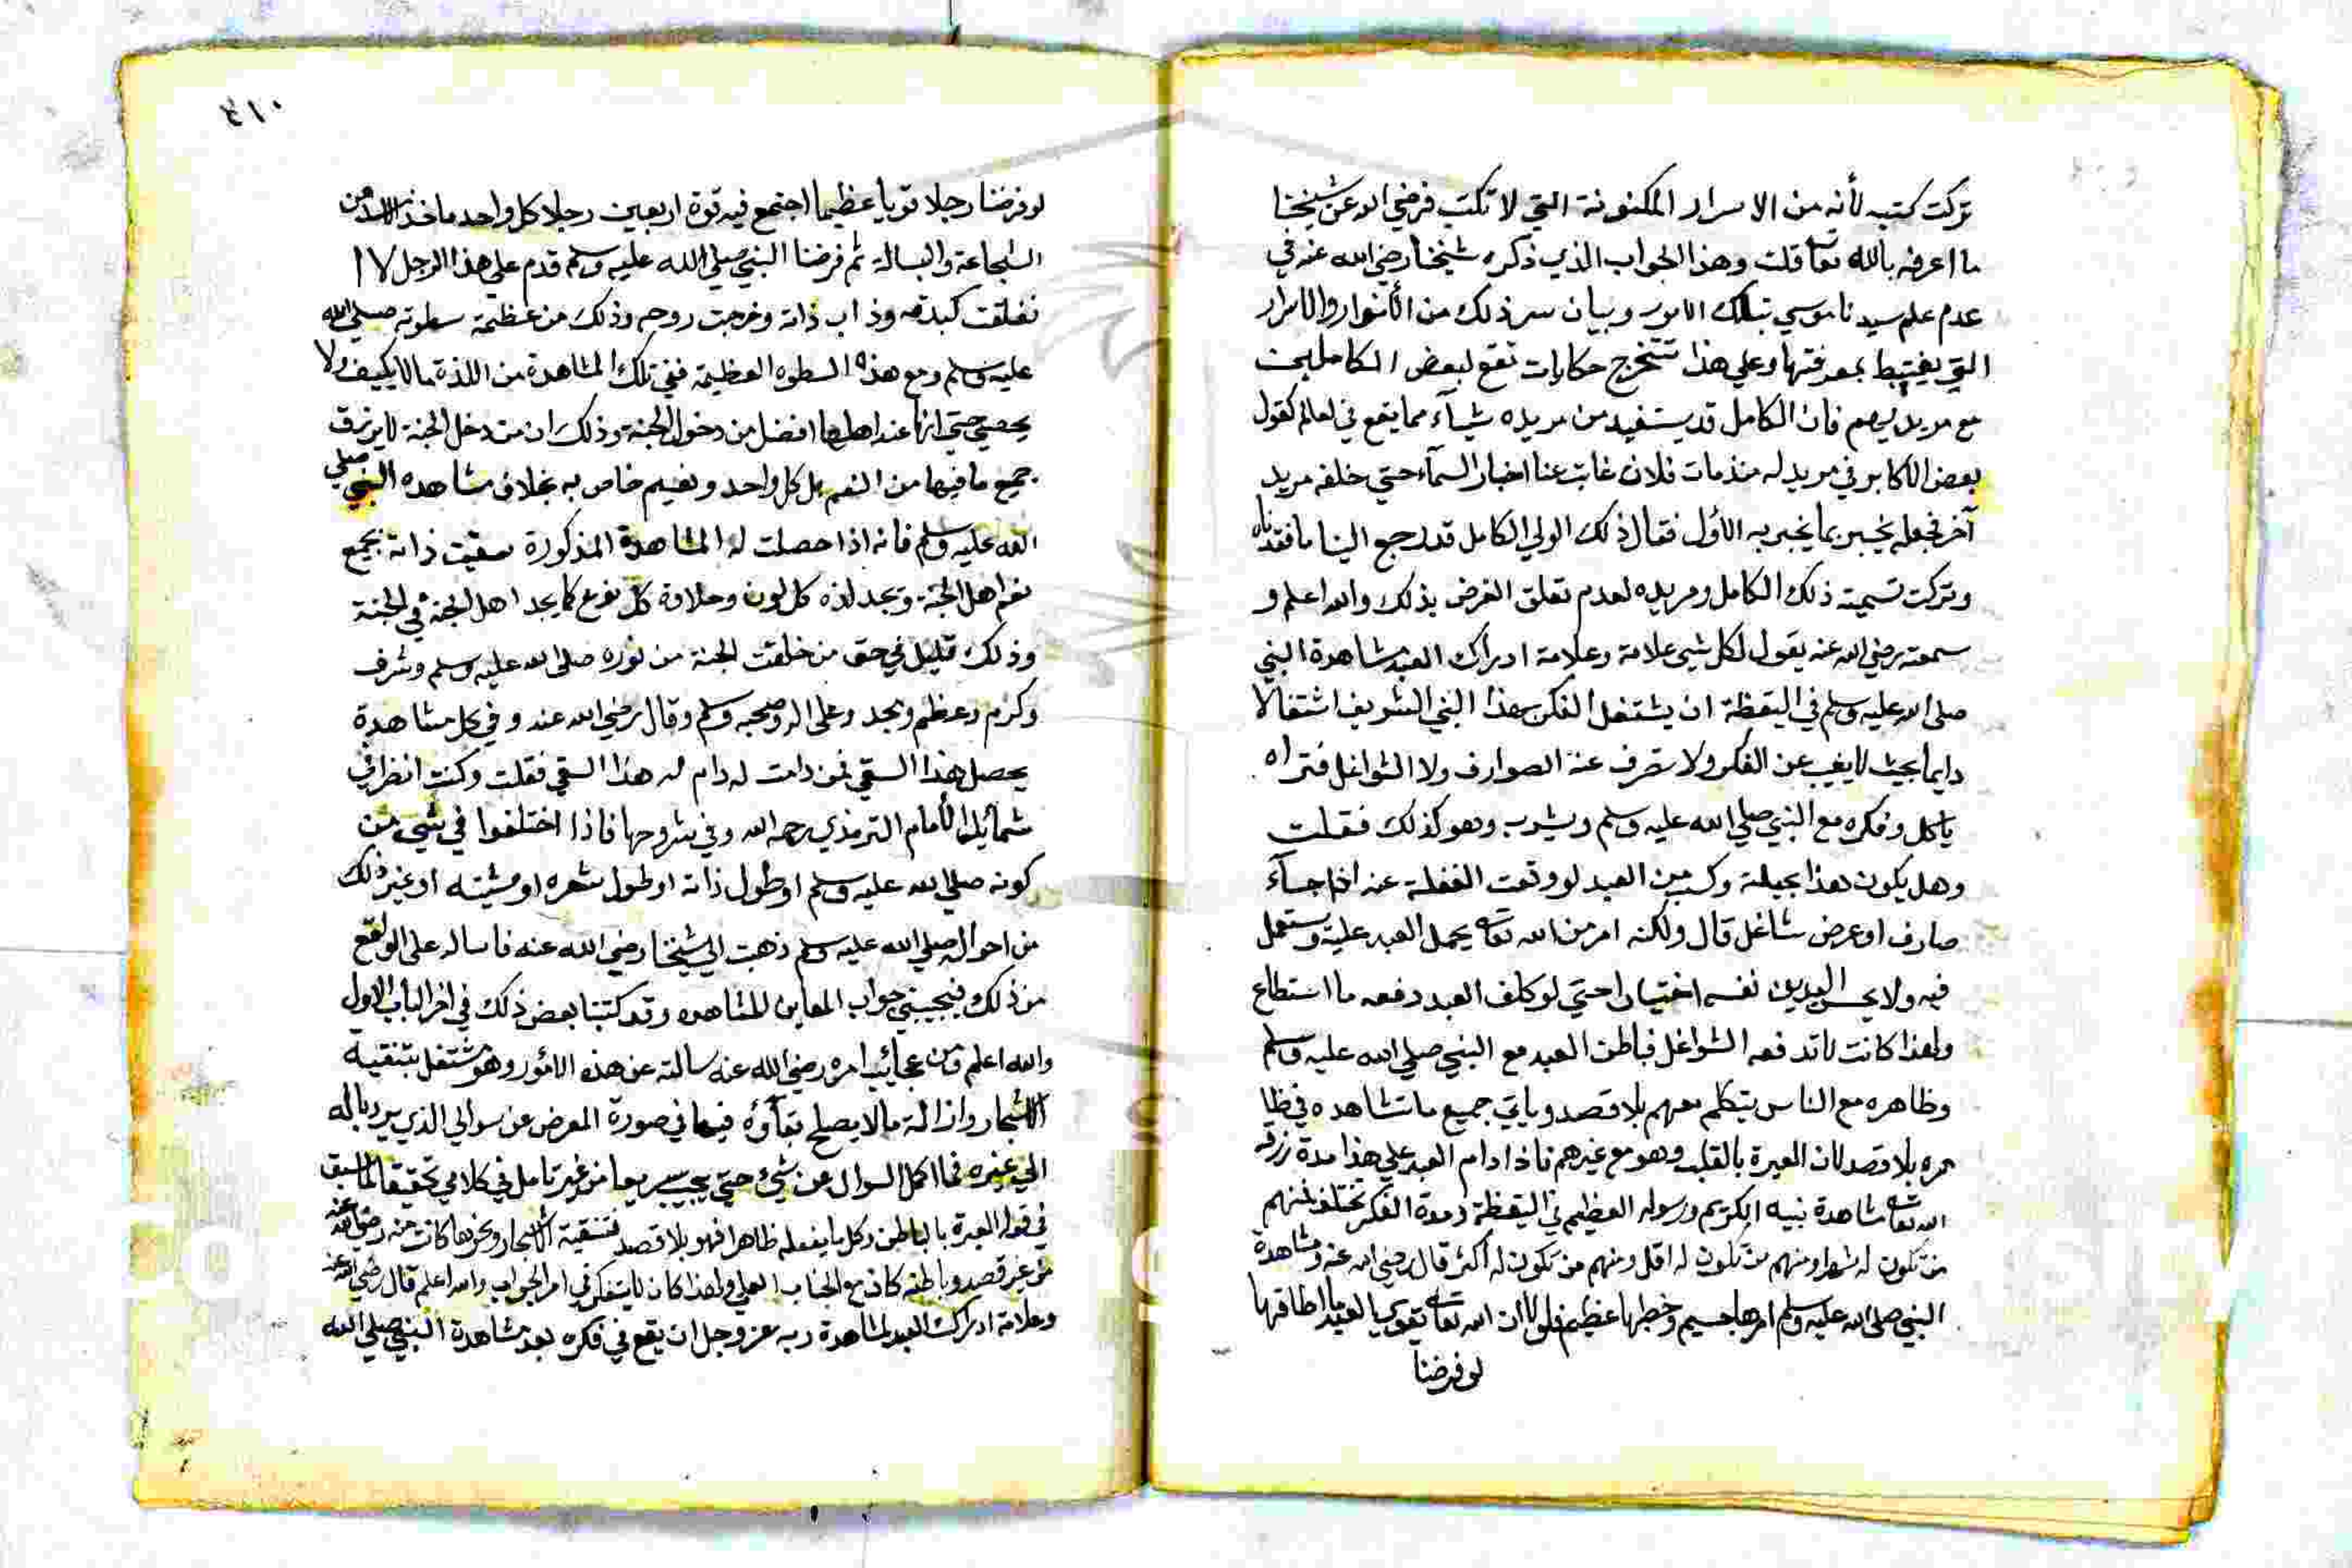 تركت كتبه لأنه من الاسرار المكنونة التي لا تكتب فرضي الله عن شيخنا
ما اعرفه بالله تعا قلت وهذا الجواب الذي ذكره شيخنا رضي الله عنه في
عدم علم سيدنا موسي بتلك الامور وبيان سر ذلك من الأنوار والاسرار
التي يغتبط بمعرفتها وعلي هذا تتخرج حكايات تقع لبعض الكاملين
مع مريديهم فان الكامل قد يستفيد من مريده شيأ مما يقع في لعالم كقول
بعض الاكابر في مريد له منذ مات فلان غابت عنا اخبار السمآء حتي خلفه مريد
آخر فجعله يخبر بما يخبر به الأول فقال ذلك الولي الكامل قد رجع الينا ما فقدناه
وتركت تسمية ذلك الكامل ومريده لعدم تعلق الغرض بذلك والله اعلم و
سمعته رضي الله عنه يقول لكل شيء علامة وعلامة ادراك العبد مشاهدة النبي
صلي الله عليه وسلم في اليقظة ان يشتغل الفكر بهذا النبي الشريف اشتغالا
دايما بحيث لا يغيب عن الفكر ولا تصرف عنه الصوارف ولا الشواغل فتراه
ياكل وفكره مع النبي صلي الله عليه وسلم ويشرب وهو كذلك فقلت
وهل يكون هذا بحيلة وكسب من العبد لو وقعت الغفلة عنه اذا جآء
صارف او عرض شاغل قال ولكنه امر من الله تعا يحمل العبد عليه ويستعمل
فيه ولا يحس العبد من نفسه اختيارا حتي لو كلف العبد دفعه ما استطاع
ولهذا كانت لا تدفعه الشواغل فباطن العبد مع النبي صلي الله عليه وسلم
وظاهره مع الناس يتكلم معهم بلا قصد وياتي جميع ما تشاهده في ظا
هره بلا قصد لان العبرة بالقلب وهو مع غيرهم فاذا دام العبد علي هذا مدة رزقه
الله تعا مشاهدة نبيه الكريم ورسوله العظيم في اليقظة ومدة الفكر تختلف فمنهم
من تكون له شهرا ومنهم من تكون له اقل ومنهم من تكون له اكثر قال رضي الله عنه ومشاهدة
النبي صلي الله عليه وسلم امرها جسيم وخطبها عظيم فلولا ان الله تعا يقوي العبد ما اطاقها
لو فرضنا
٤١٠
لو فرضنا رجلا قويا عظيما اجتمع فيه قوة اربعين رجلا كل واحد ياخذ من
الشجاعة والبسالة ثم فرضنا النبي صلي الله عليه وسلم قدم علي هذا الرجل لا ا
نفلقت كبده وذاب ذاته وخرجت روحه وذلك من عظيمة سطوته صلي الله
عليه وسلم ومع هذه السطوه العظيمة ففي تلك المشاهدة من اللذة ما لا يكيف ولا
يحصي حتي انها عند اهلها افضل من دخول الجنة وذلك ان من دخل الجنة لا يرزق
جميع ما فيها من النعم بل كل واحد ونعيم خاص به بخلاف مشاهده النبي صلي
الله عليه وسلم فانه اذا حصلت له المشاهدة المذكورة سقيت ذاته بجميع
نعم اهل الجنة ويجد لذه كل لون وحلاوة كل نوع كما يجد اهل الجنة في الجنة
وذلك قليل في حق من خلقت الجنة من نوره صلي الله عليه وسلم وشرف
وكرم وعظم ومجد وعلي اله وصحبه وسلم وقال رضي الله عنه وفي كل مشاهدة
يحصل هذا السقي فمن دامت له دام له هذا السقي فقلت وكنت انظر في
شمايل الأمام الترمذي رحمه الله وفي شروحها فاذا اختلفوا في شيء من
كونه صلي الله عليه وسلم او طول ذاته او طول شعره او مشيته او غير ذلك
من احواله صلي الله عليه وسلم ذهبت الي شيخنا رضي الله عنه فاساله علي الواقع
من ذلك فيجيبني جواب المعاين المشاهد وقد كتبنا بعض ذلك في اخر الباب الاول
والله اعلم ومن عجائب امره رضي الله عنه سالته عن هذه الأمور وهو مشتغل بتنقية
الاشجار وازالة ما لا يصلح بقآؤه فيها في صورة المعرض عن سوالي الذي يرد باله
الي غيره فما اكمل السوال عن شيء حتي يجيب سريعا من غير تامل في كلامي تحقيقا لما سبق
في قوله العبرة بالباطن وكل ما يفعله ظاهرا فهو بلا قصد فتنقية الاشجار ونحوها كانت منه رضي الله عنه
من غير قصد وباطنه كان مع الجناب العلي ولهذا كان لا يتفكر في امر الجواب والله اعلم قال رضي الله عنه
وعلامة ادراك العبد لمشاهدة ربه عز وجل ان يقع في فكره بعد مشاهدة النبي صلي الله